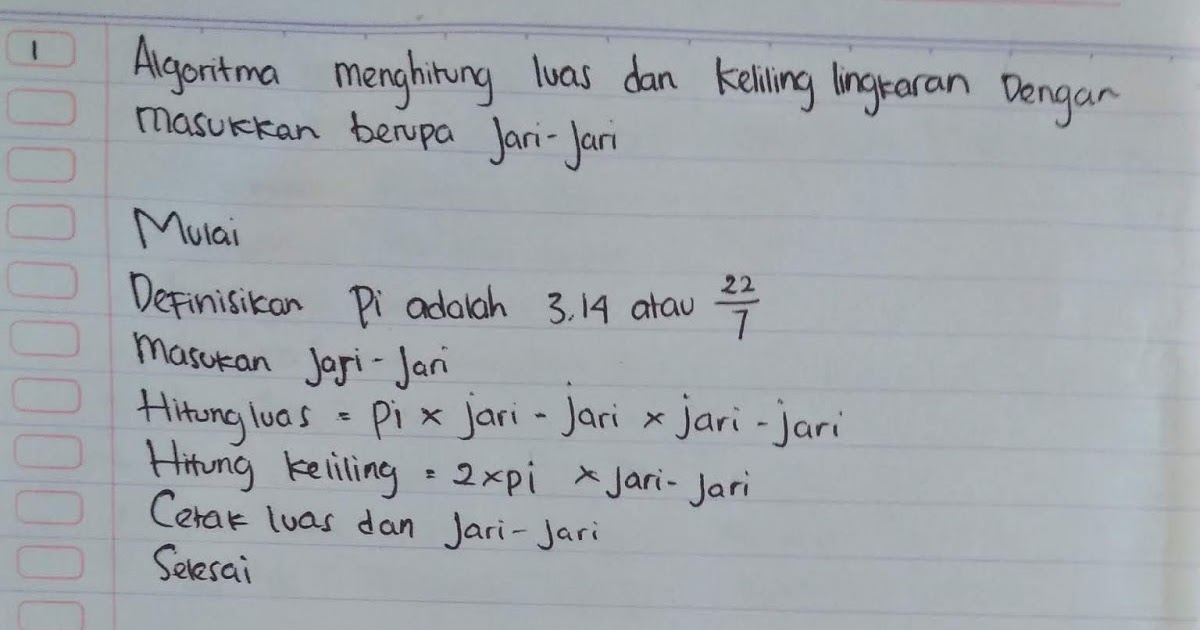 1
Algoritma menghitung luas dan keliling lingkaran Dengan
masukkan berupa Jari-Jari
Mulai
Definisikan Pi adalah 3.14 atau 22/7
Masukan Jari-Jari
Hitung luas = Pi x jari - jari x jari - jari
Hitung keliling = 2 x pi x Jari-Jari
Cetak luas dan Jari-Jari
Selesai